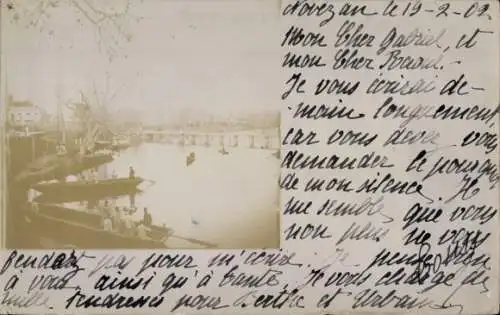 le 19-2-02
Mon Cher Gabriel, et
mon Cher Raoul.
Je vous écrirai de-
main longuement,
car vous devez vous
demander le pourquoi
de mon silence. Je
me semble que vous
non plus ne vous
pas pour m'écrire. Je pense bien
à vous, ainsi qu'à tante. Je vous charge de
mille tendresses pour Berthe et Urbain